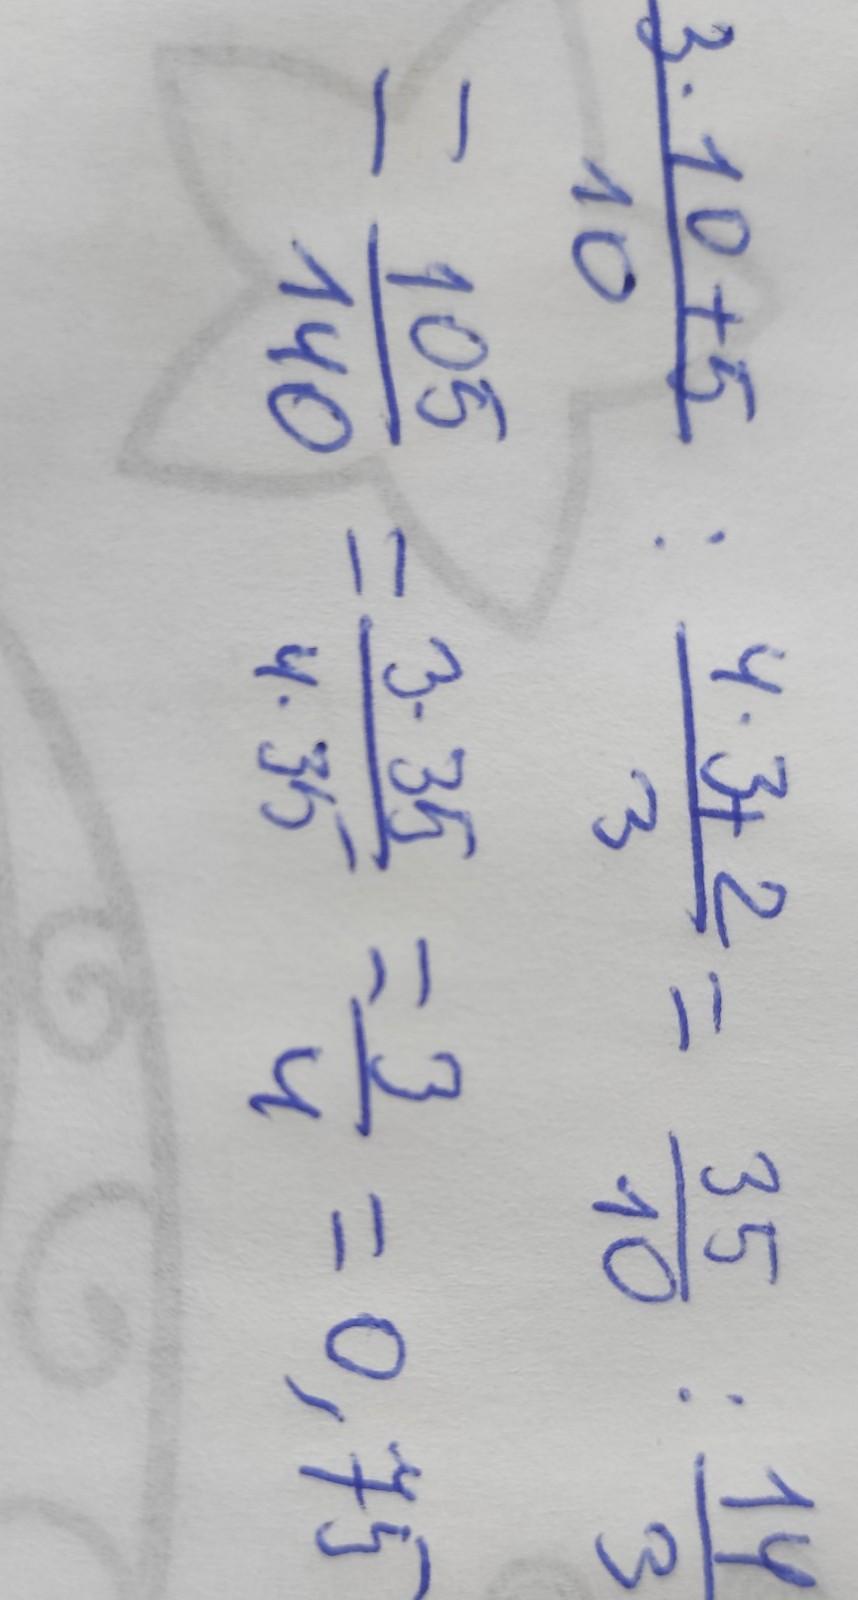 (3·10+5)/10 : (4·3+2)/3 = 35/10 : 14/3
= 105/140 = (3·35)/(4·35) = 3/4 = 0,75